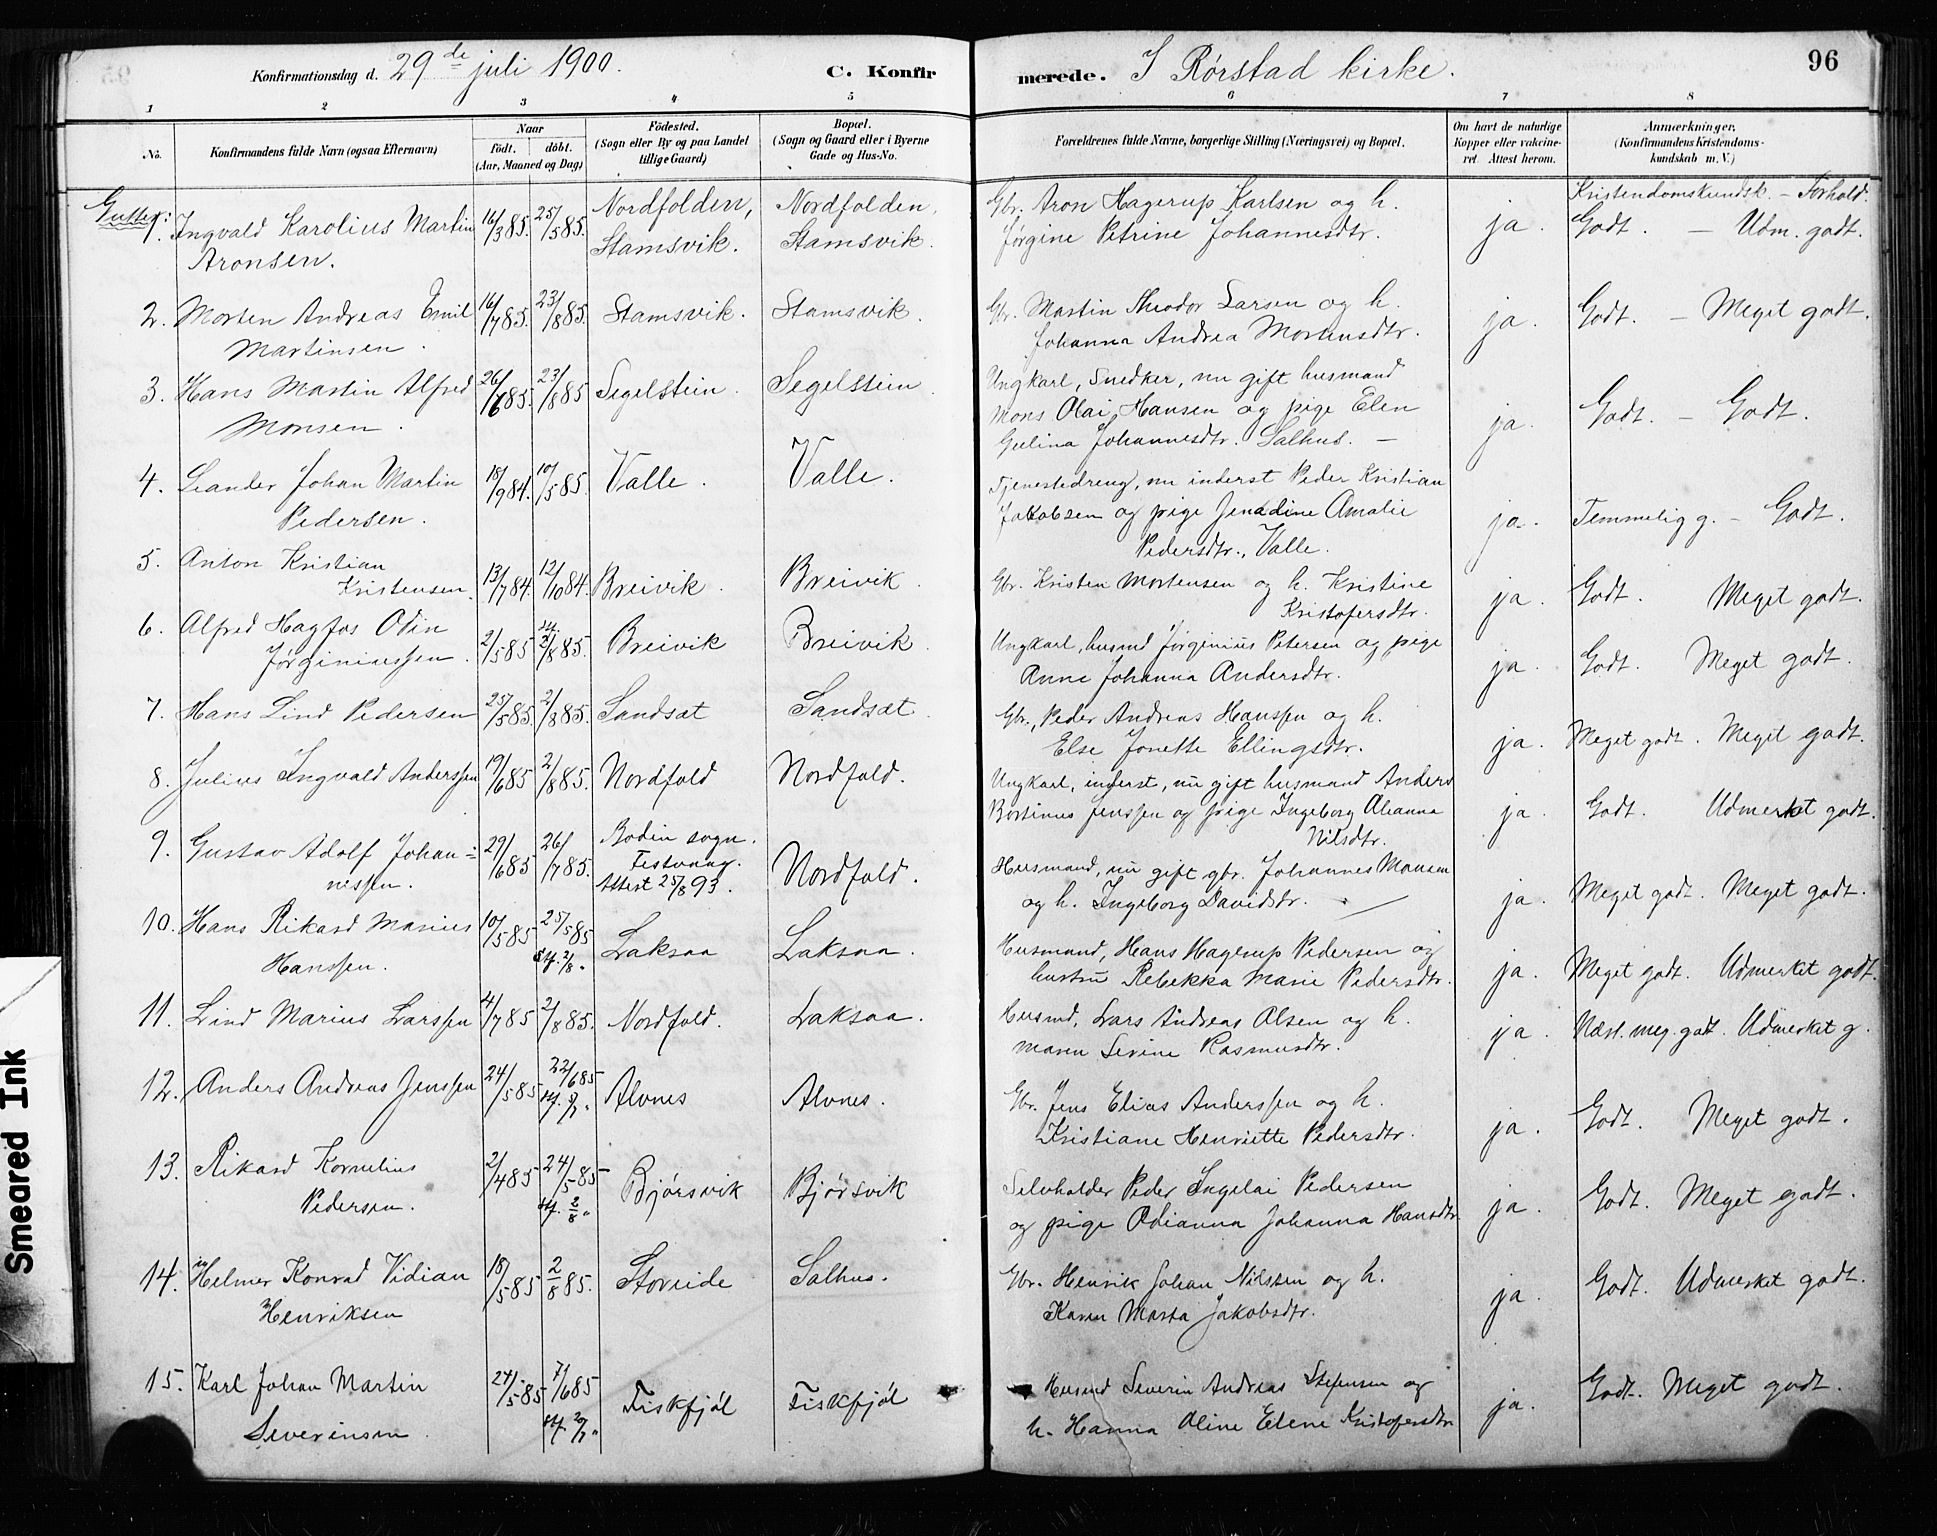 Konfirmationsdag d. 29de juli 1900.
C. Konfir
merede. I Rørstad kirke.
96
1 2 3 4 5 6 7 8
No.
Konfirmandens fulde Navn (ogsaa Efternavn)
Naar
Født. døbt.
(Aar, Maaned og Dag)
Fødested.
(Sogn eller By og paa Landet
tillige Gaard)
Bopæl.
(Sogn og Gaard eller i Byerne
Gade og Hus-No.
Forældrenes fulde Navne, borgerlige Stilling (Næringsvei) og Bopæl.
Om havt de naturlige
Kopper eller vakcine-
ret. Attest herom.
Anmærkninger.
(Konfirmandens Kristendoms-
kundskab m. V.)
Gutter:
Kristendomskundsk. - Forhold.
1. Ingvald Karolius Martin 16/3 85. 25/5 85. Nordfolden, Nordfolden, Gbr. Aron Hagerup Karlsen og h. ja. Godt. - Udm. godt.
Aronsen. Stamsvik. Stamsvik. Jørgine Petrine Johannesdtr.
2. Morten Andreas Emil 16/7 85. 23/8 85. Stamsvik. Stamsvik. Gbr. Martin Theodor Larsen og h. ja. Godt. - Meget godt.
Martinsen. Johanna Andrea Mortensdtr.
3. Hans Martin Alfred 26/6 85. 23/8 85 Segelstein. Segelstein. Ungkarl, Snedker, nu gift husmand
Monsen. Mons Olai Hansen og pige Elen ja. Godt. - Godt.
Gulina Johannesdtr. Salhus. -
4. Leander Johan Martin 18/9 84. 10/5 85. Valle. Valle. Tjenestedreng, nu inderst Peder Kristian
Pedersen. Jakobsen og pige Jenadine Amalie ja. Temmelig g. - Godt.
Pedersdtr., Valle.
5. Anton Kristian 13/7 84. 12/10 84. Breivik. Breivik. Gbr. Kristen Mortensen og h. Kristine ja. Godt. Meget godt.
Kristensen. Kristofersdtr.
6. Alfred Hagfos Odin 2/5 85 2/8 85. Breivik Breivik. Ungkarl, husmd Jørginius Petersen og pige ja. Godt. Meget godt.
Jørginiussen. Anne Johanna Andersdtr.
7. Hans Lind Pedersen 25/5 85. 2/8 85. Sandsæt Sandsæt. Gbr., Peder Andreas Hanssen og h. ja. Meget godt. Meget godt.
Else Jonette Ellingsdtr.
8. Julius Ingvald Anderssen 19/6 85 2/8 85. Nordfold Nordfold. Ungkarl, inderst, nu gift husmand Anders
Bortinus Jenssen og pige Ingeborg Aleanna ja. Godt. Udmerket godt.
Nilsdtr.
9. Gustav Adolf Johan= 29/6 85 26/7 85. Bodin sogn. Nordfold. Husmand, nu gift gbr. Johannes Monsen ja. Meget godt. Meget godt.
nessen. Festvaag. og h. Ingeborg Davidsdtr.
Attest 25/8 93.
10. Hans Rikard Marius 10/5 85 25/5 85 Laksaa Laksaa. Husmand, Hans Hagerup Pedersen og ja. Meget godt. Udmerket godt.
Hanssen. st. 2/8 " hustru Rebekka Marie Pedersdtr.
11. Lind Marius Larssen 4/7 85 2/8 85. Nordfold. Laksaa. Husmd, Lars Andreas Olsen og h. ja. Næst. meg. godt. Udmerket g.
Maren Sevine Rasmusdtr.
12. Anders Andreas Jenssen 24/5 85 22/6 85 Alvnes Alvnes. Gbr. Jens Elias Anderssen og h. ja. Godt. Meget godt.
Kristiane Henriette Pedersdtr.
13. Rikard Kornelius 2/4 85 24/5 85 Bjørsvik Bjørsvik Selvholder Peder Ingelai Pedersen ja. Godt. Meget godt.
Pedersen. st. 2/8 " og pige Odianna Johanna Hansdtr.
14. Helmer Konrad Vidian 18/5 85 2/8 85. Storeide Salhus. Gbr. Henrik Johan Nilssen og h. ja. Godt. Udmerket godt.
Henriksen Karen Marta Jakobsdtr.
15. Karl Johan Martin 24/5 85 7/6 85 Fiskfjøl Fiskfjøl Husmd Severin Andreas Stefensen og ja. Godt. Meget godt.
Severinsen. h. Hanna Oline Elene Kristofersdtr
Smeared Ink